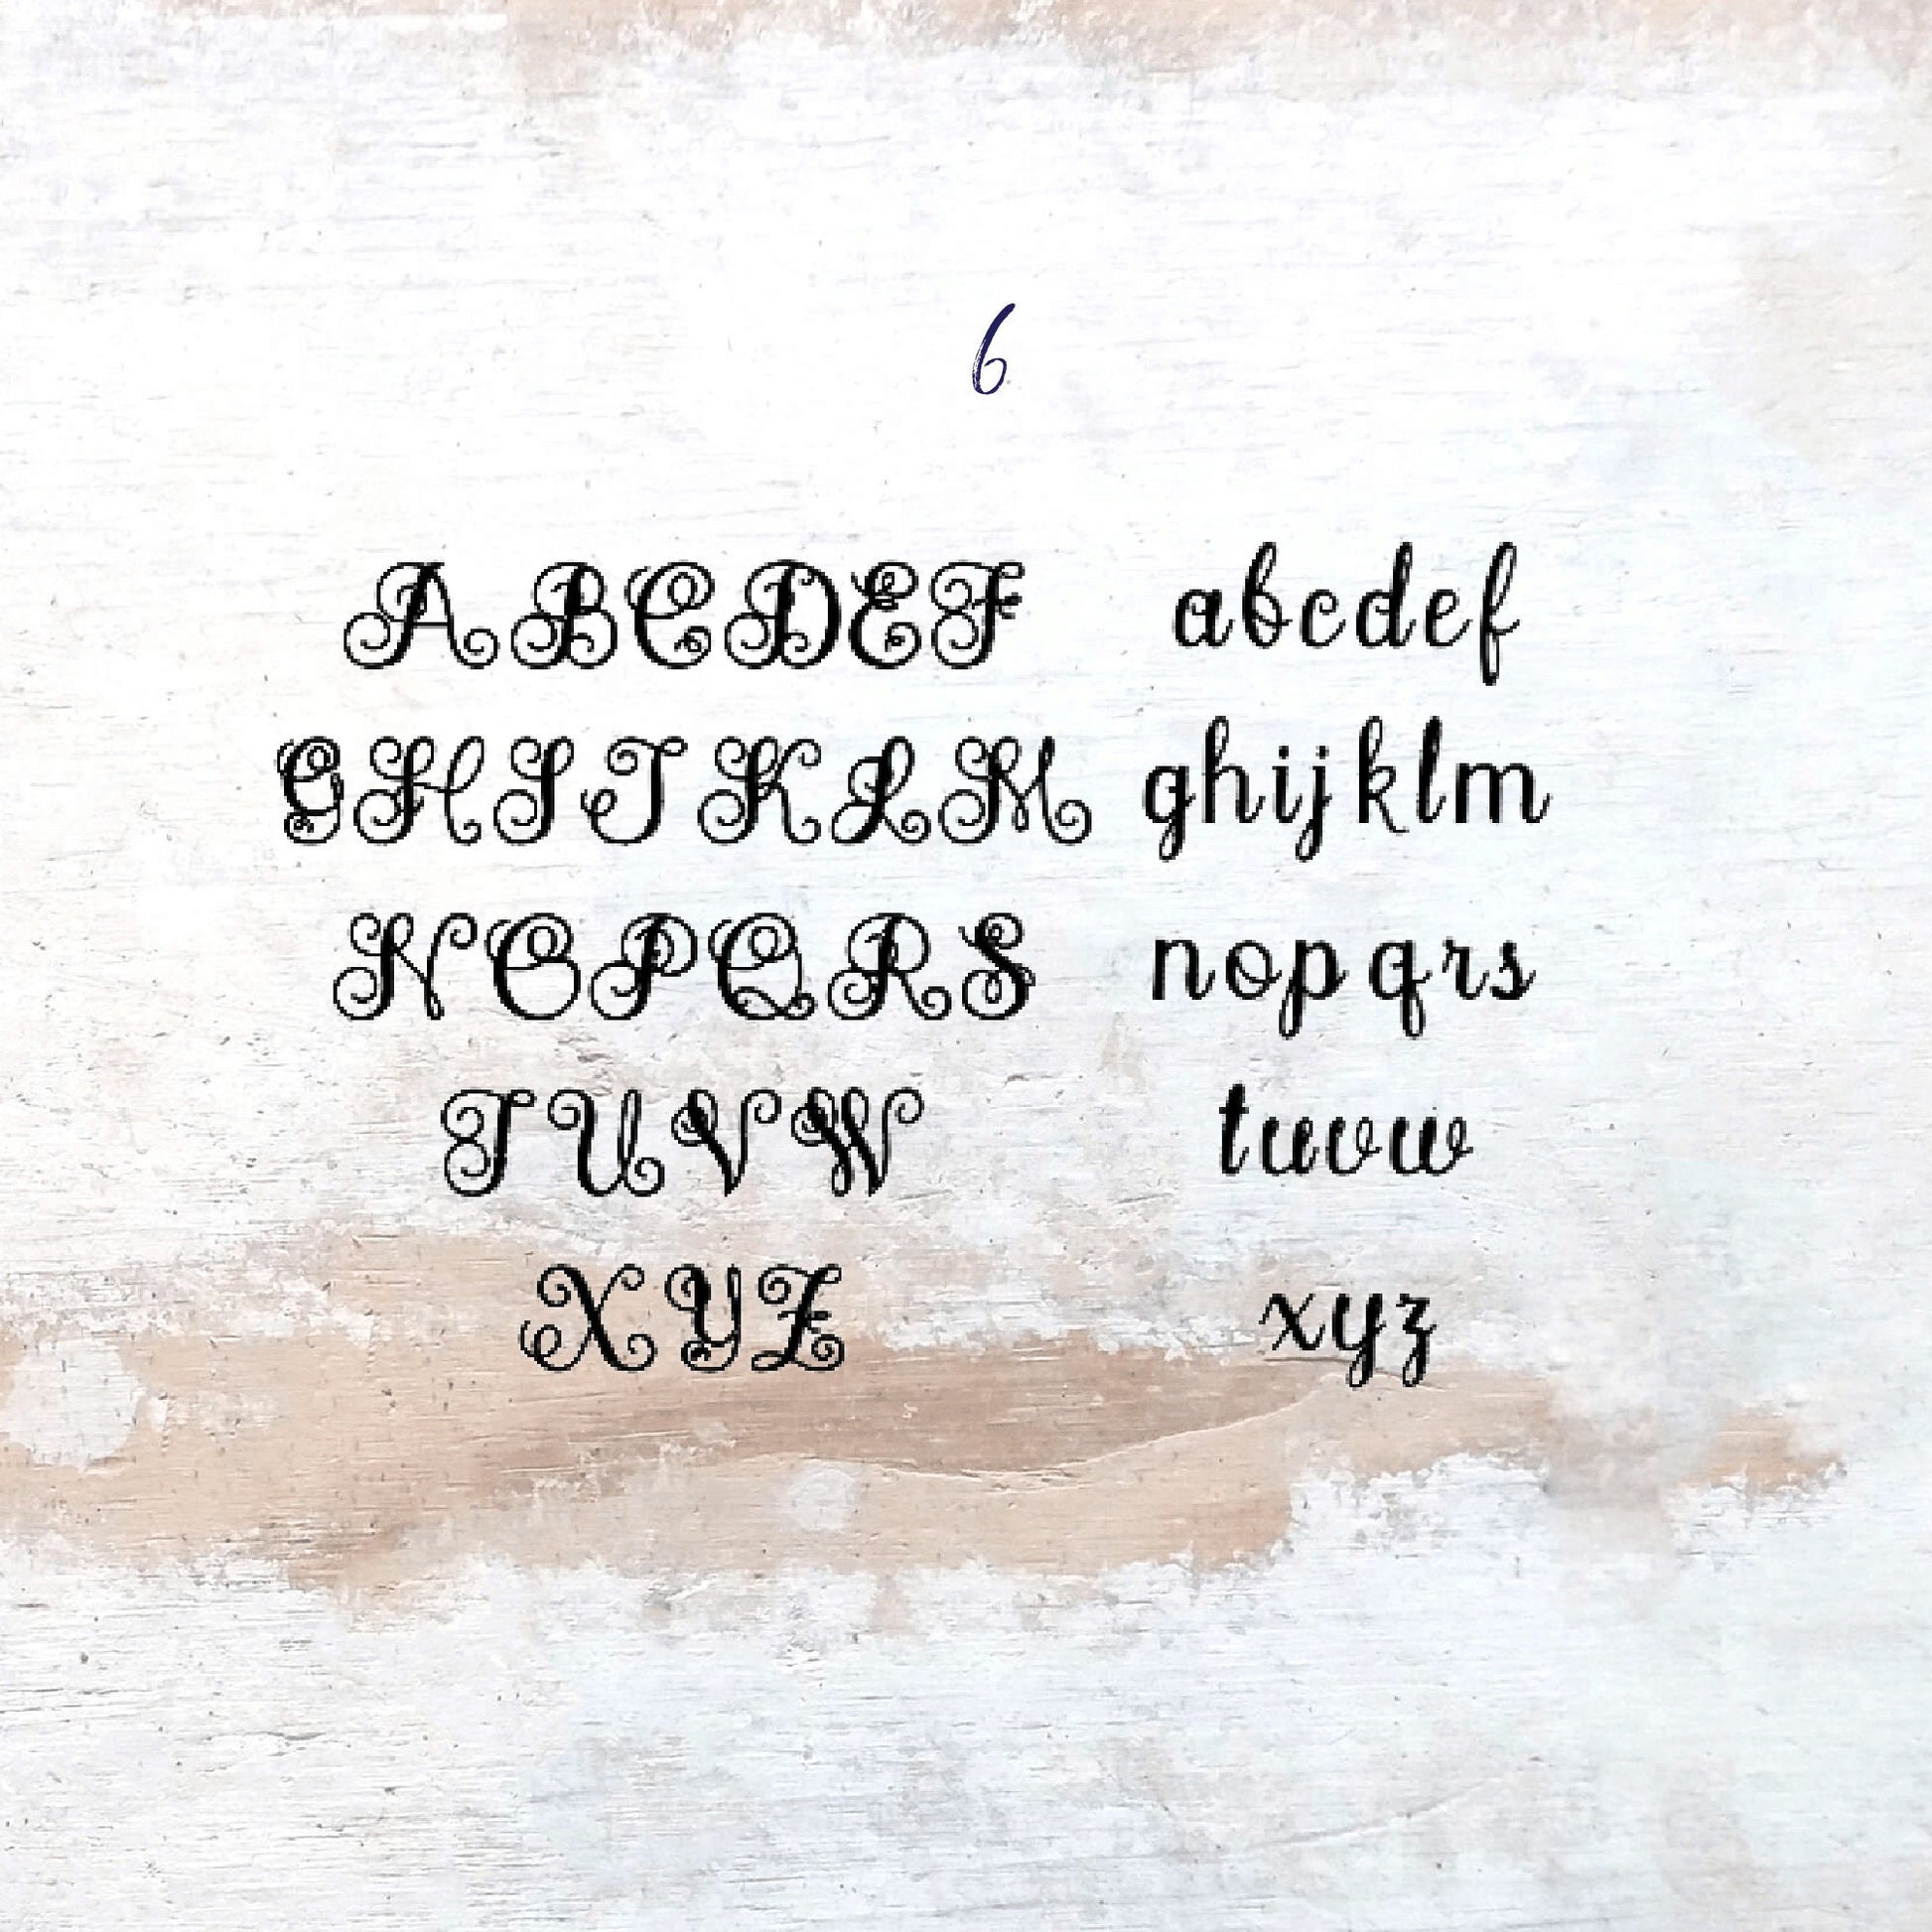 6
ABCDEF abcdef
GHIJKLM ghijklm
NOPQRS nopqrs
TUVW tuvw
XYZ xyz